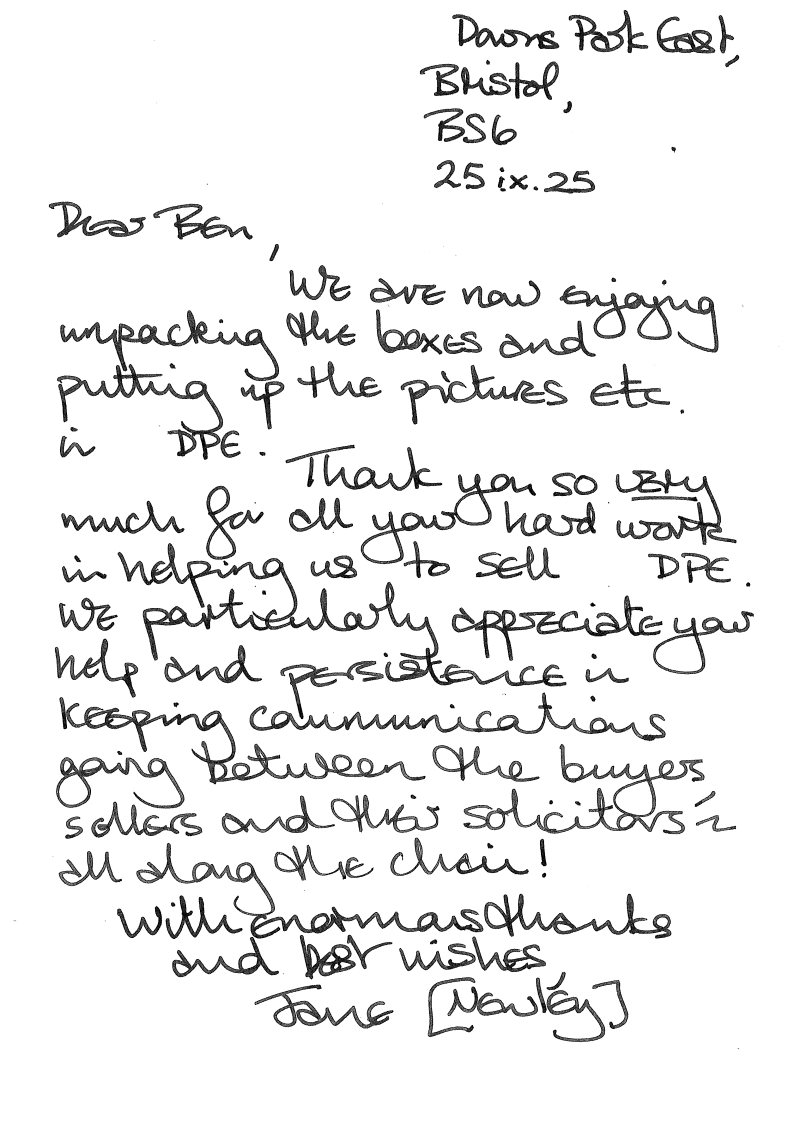 Downs Park East,
Bristol,
BS6
25 ix. 25
Dear Ben,
We are now enjoying
unpacking the boxes and
putting up the pictures etc.
in DPE.
Thank you so very
much for all your hard work
in helping us to sell DPE.
We particularly appreciate your
help and persistence in
keeping communications
going between the buyers,
sellers and their solicitors -
all along the chain!
With enormous thanks
and best wishes,
Jane [Newley]